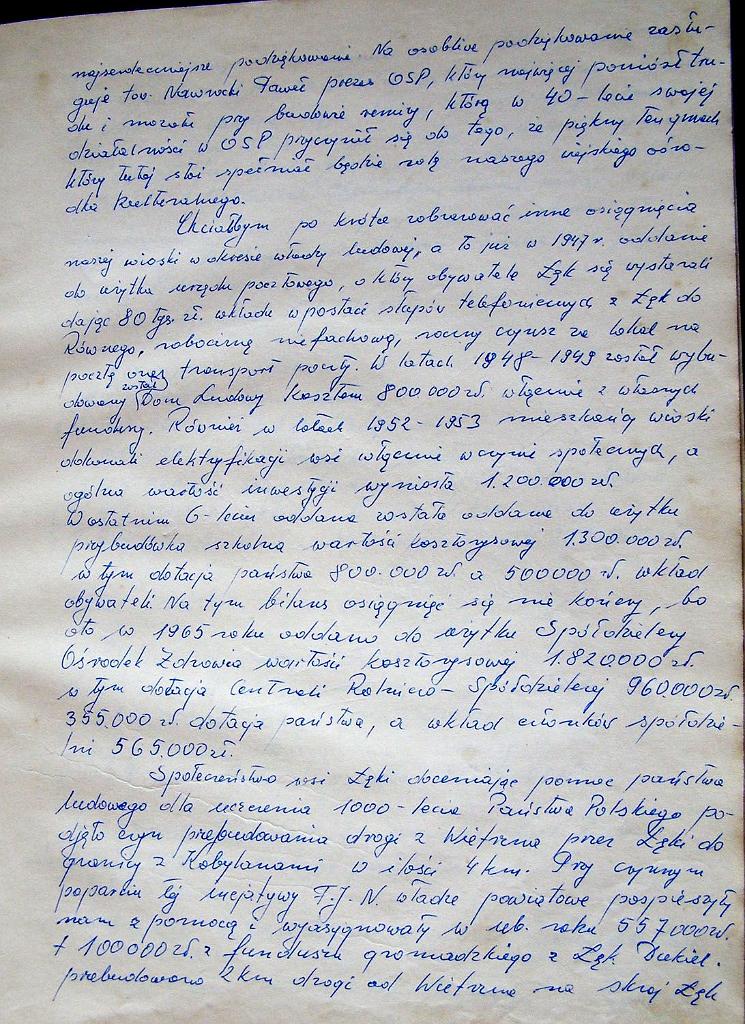 najserdeczniejsze podziękowanie. Na osobliwe podziękowanie zasłu-
guje tow. Nawrocki Paweł prezes OSP, który najwięcej poniósł tru-
du i mozołu przy budowie remizy, którą w 40-lecie swojej
działalności w OSP przyczynił się do tego, że piękny ten gmach
który tutaj stoi spełniał będzie rolę naszego wiejskiego ośro-
dka kulturalnego.
Chciałbym po krótce zobrazować inne osiągnięcia
naszej wioski w okresie władzy ludowej, a to już w 1947 r. oddanie
do użytku urzędu pocztowego, o który obywatele Łęk się wystarali
dając 80 tys. zł. wkładu w postaci słupów telefonicznych z Łęk do
Równego, robocizną niefachową, roczny czynsz za lokal na
pocztę oraz transport poczty. W latach 1948-1949 został wybu-
dowany został Dom Ludowy kosztem 800 000 zł. włącznie z własnych
funduszy. Również w latach 1952-1953 mieszkańcy wioski
dokonali elektryfikacji wsi włącznie w czynie społecznych, a
ogólna wartość inwestycji wyniosła 1.200.000 zł.
W ostatnim 6-leciu oddana została oddana do użytku
przybudówka szkolna wartości kosztorysowej 1.300.000 zł.
w tym dotacja państwa 800.000 zł. a 500000 zł. wkład
obywateli. Na tym bilans osiągnięć się nie kończy, bo
oto w 1965 roku oddano do użytku Spółdzielczy
Ośrodek Zdrowia wartości kosztorysowej 1.820.000 zł.
w tym dotacja Centrali Rolniczo-Spółdzielczej 960.000 zł.
355.000 zł. dotacja państwa, a wkład członków spółdzie-
lni 565.000 zł.
Społeczeństwo wsi Łęki doceniając pomoc państwa
ludowego dla uczczenia 1000-lecia Państwa Polskiego po-
djęło czyn przebudowania drogi z Wietrzna przez Łęki do
granicy z Kobylanami w ilości 4 km. Przy czynnym
poparciu tej inicjatywy F.J.N. władze powiatowe pospieszyły
nam z pomocą i wyasygnowały w ub. roku 557000 zł.
+ 100000 zł. z funduszu gromadzkiego z Łęk Dukiel.
przebudowano 2 km drogi od Wietrzna na skraj Łęk